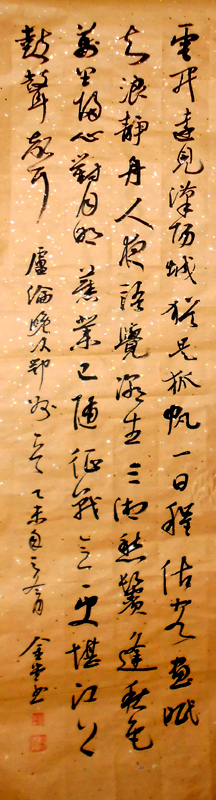 雲開遠見漢陽城猶是孤帆一日程估客晝眠
知浪靜舟人夜語覺潮生三湘愁鬢逢秋色
萬里歸心對月明舊業已隨征戰盡更堪江上
鼓聲
盧綸晚次鄂州 乙未 書